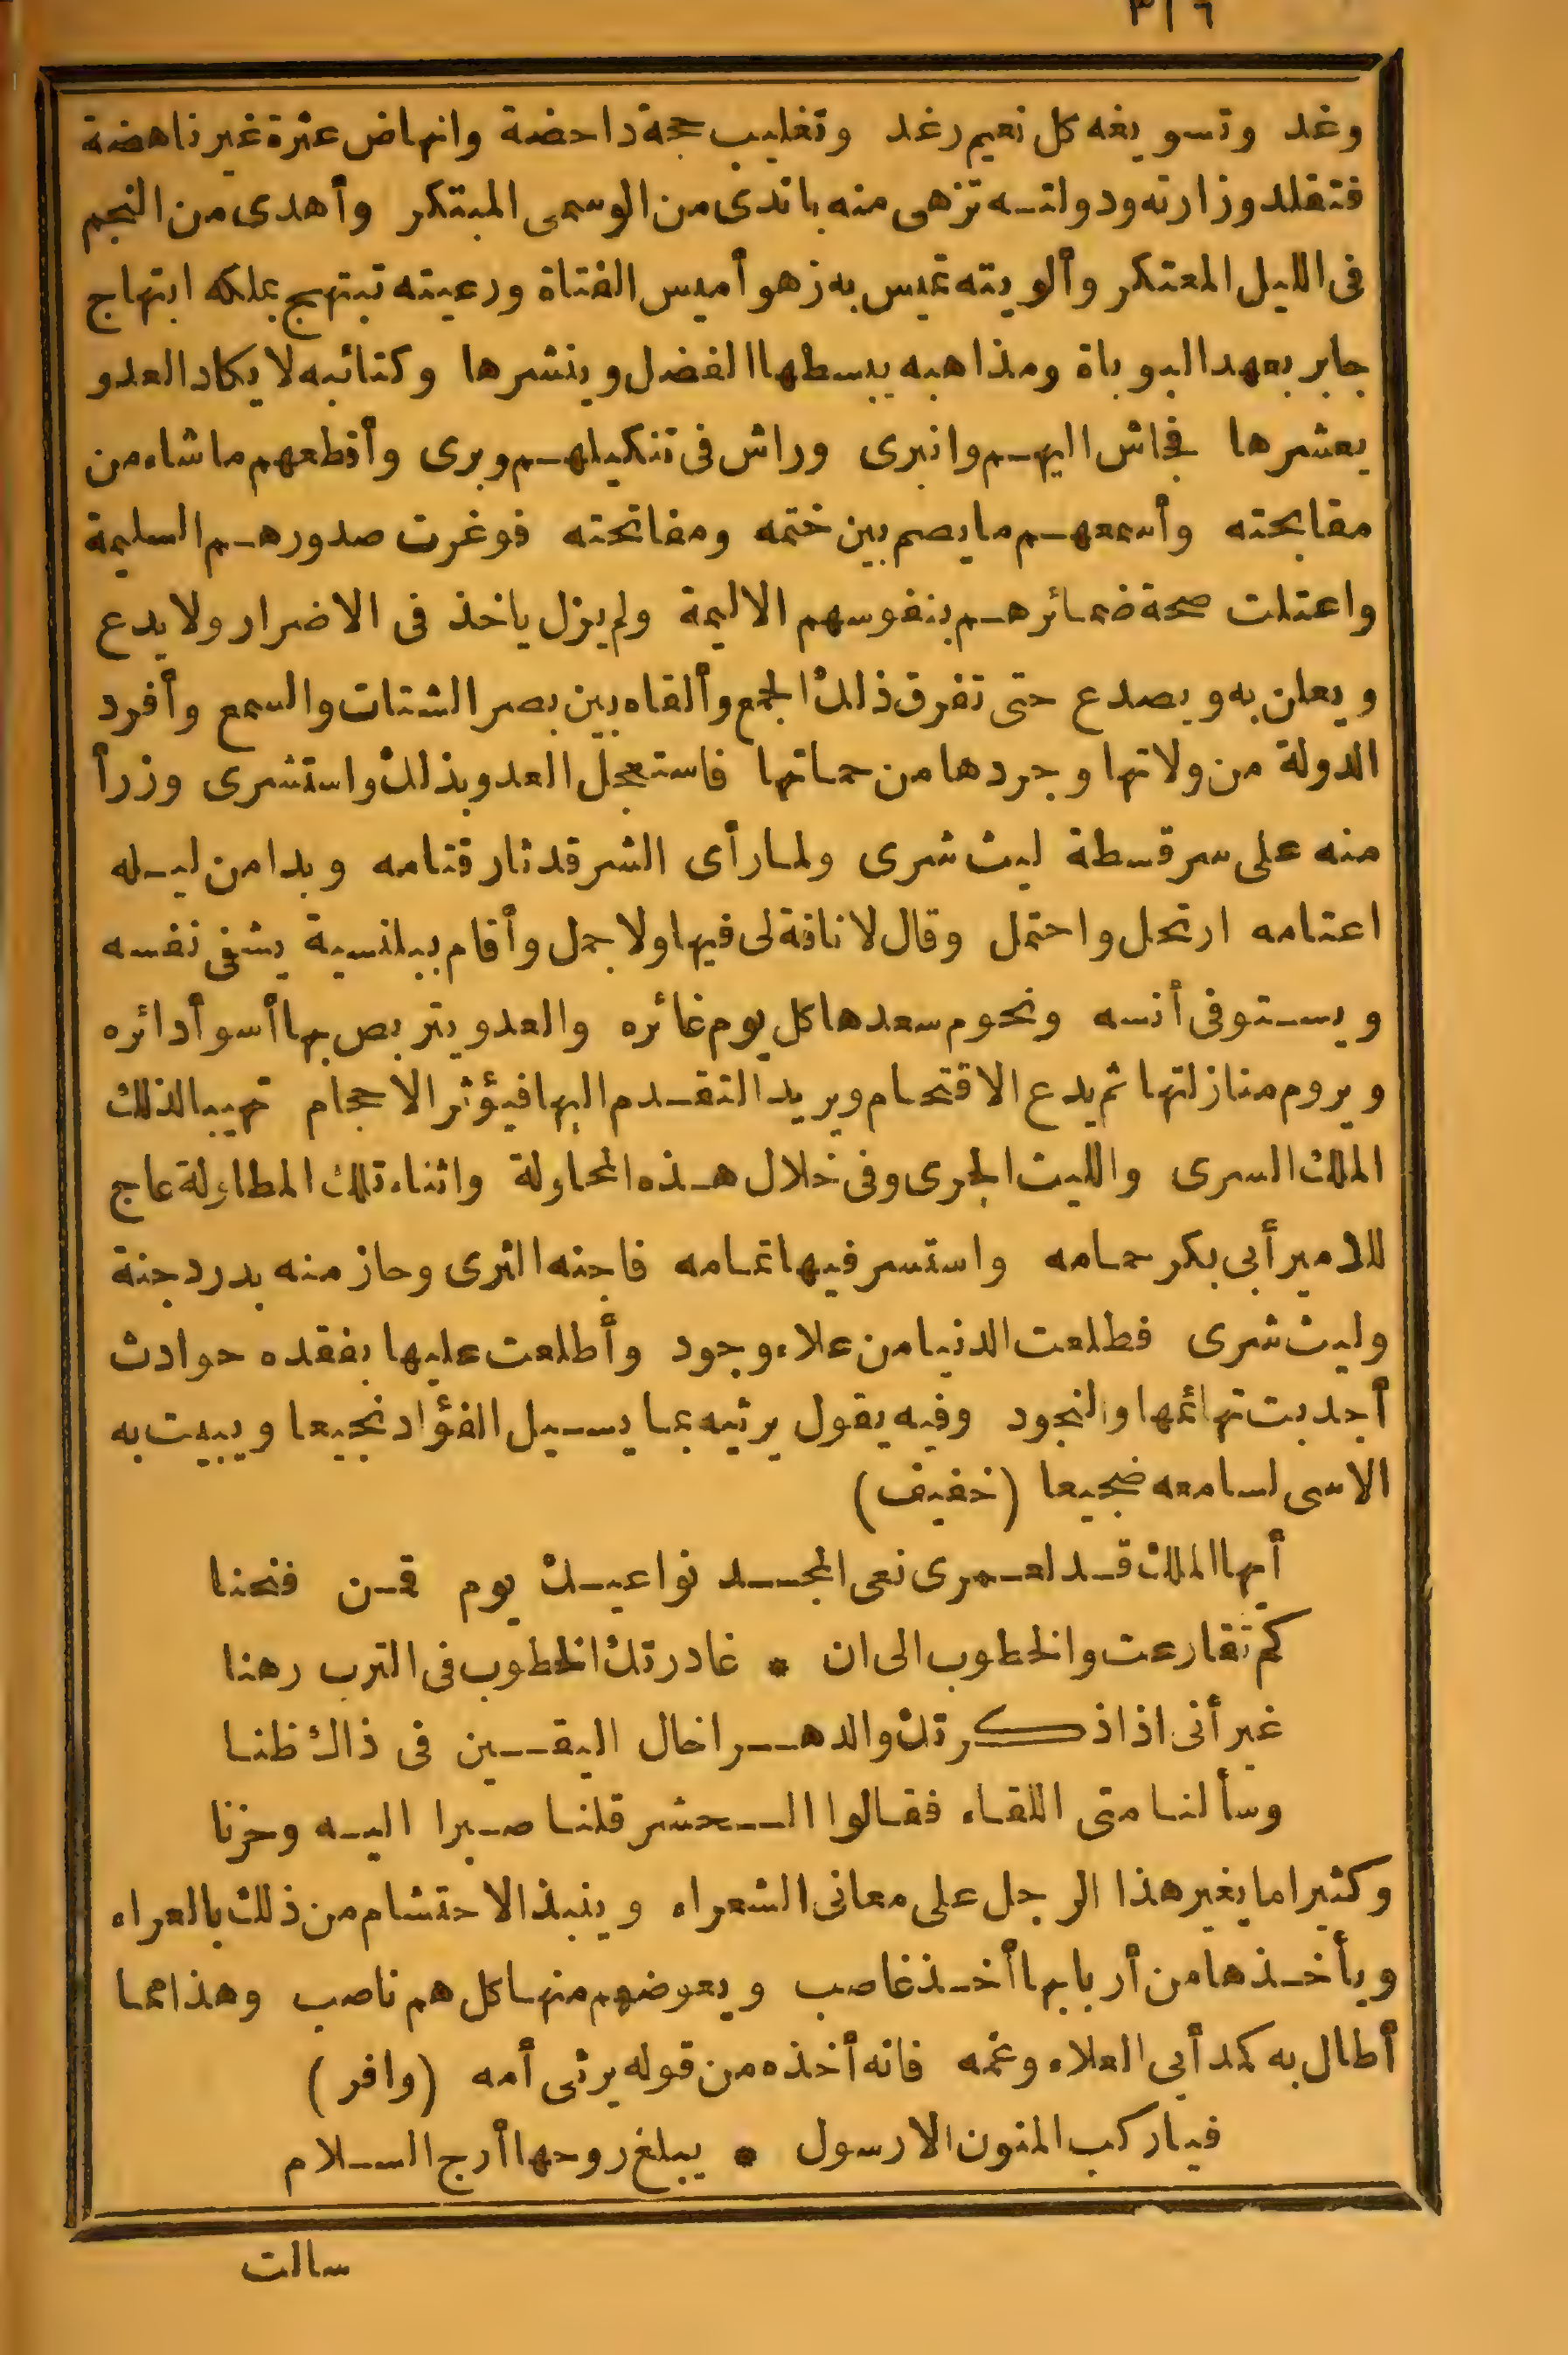 ٣١٦
وغد وتسويغه كل نعيم رغد وتغليب حجة داحضة وانهاض عثرة غير ناهضة
فتقلد وزارته ودولته تزهى منه باندى من الوسمى المبتكر وأهدى من النجم
فى الليل المعتكر وألويته تميس به زهوأ ميس الفتاة ورعيته تبتهج بملكه ابتهاج
جابر بعهد البوباة ومذاهبه يبسطها الفضل وينشرها وكتائبه لا يكاد العدو
يعشرها فجاش اليهم وانبرى وراش فى تنكيلهم وبرى وأقطعهم ما شاء من
مقابحته وأسمعهم ما يصم بين ختمه ومفاتحته فوغرت صدورهم السليمة
واعتلت صحة ضمائرهم بنفوسهم الاليمة ولم يزل ياخذ فى الاضرار ولا يدع
ويعلن به ويصدع حتى تفرق ذلك الجمع وألقاه بين بصر الشتات والسمع وأفرد
الدولة من ولاتها وجردها من حماتها فاستعجل العدو بذلك واستشرى وزرأ
منه على سرقسطة ليث شرى ولما رأى الشر قد ثار قتامه وبدا من ليله
اعتامه ارتحل واحتمل وقال لا ناقة لى فيها ولا جمل وأقام ببلنسية يشفى نفسه
ويستوفى أنسه ونجوم سعدها كل يوم غائره والعدو يتربص بها أسوأ دائره
ويروم منازلتها ثم يدع الاقتحام ويريد التقدم اليها فيؤثر الاحجام تهيبا لذلك
الملك السرى والليث الجرى وفى خلال هذه المحاولة واثناء تلك المطاولة عاج
للامير أبى بكر حمامه واستسر فيها تمامه فاجنه الثرى وحاز منه بدر دجنة
وليث شرى فطلعت الدنيا من علاء وجود وأطلعت عليها بفقده حوادث
أجدبت تهائمها والنجود وفيه يقول يرثيه بما يسيل الفؤاد نجيعا ويبيت به
الاسى لسامعه ضجيعا (خفيف)
أيها الملك قد لعمرى نعى المجـد نواعيك يوم قمن فنحنا
كم تقارعت والخطوب الى ان * غادرتك الخطوب فى الترب رهنا
غير أنى اذا ذكرتك والدهـر اخال اليقين فى ذاك ظنا
وسألنا متى اللقاء فقالوا الـحشر قلنا صبرا اليه وحزنا
وكثيرا ما يغير هذا الرجل على معانى الشعراء وينبذ الاحتشام من ذلك بالعراء
ويأخذها من أربابها أخذ غاصب ويعوضهم منها كل هم ناصب وهذا مما
أطال به كمد أبى العلاء وغمه فانه أخذه من قوله يرثى أمه (وافر)
فيا ركب المنون الا رسول * يبلغ روحها أرج السلام
سالت